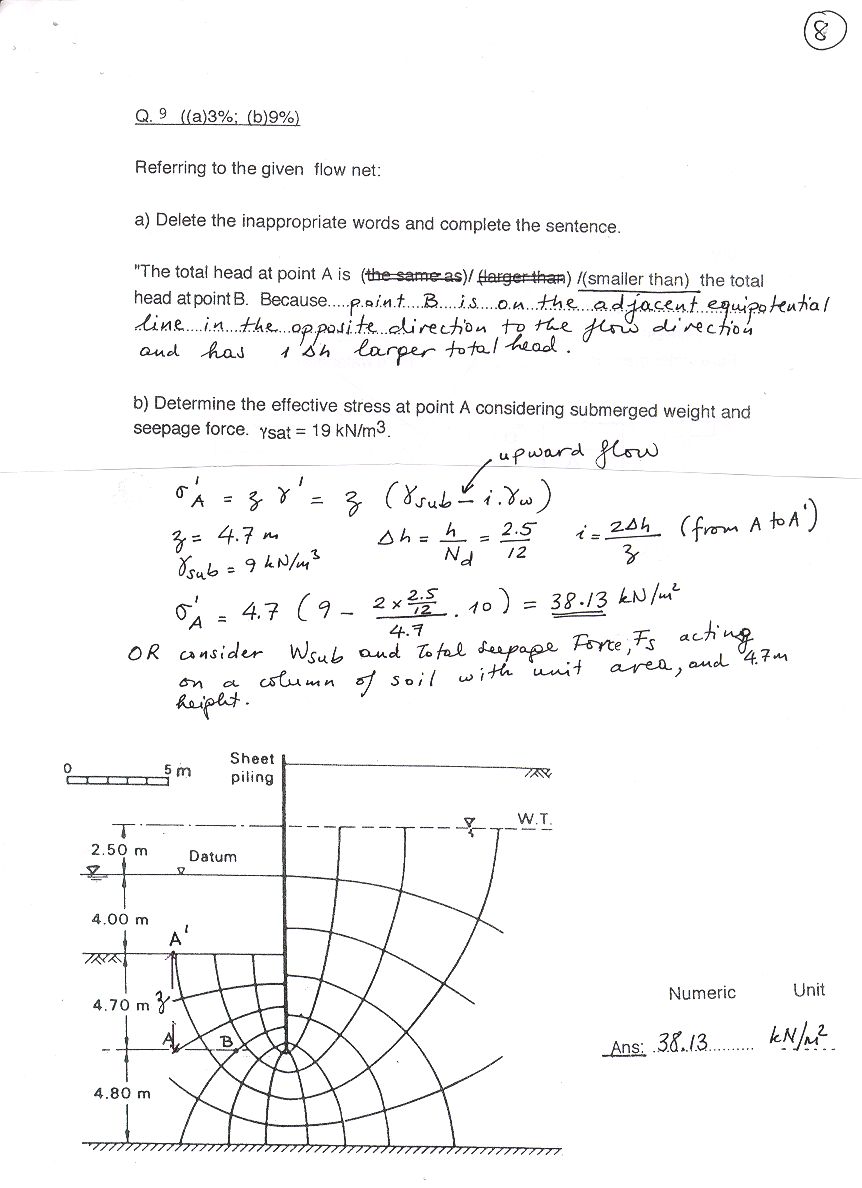 8
Q. 9 ((a)3%; (b)9%)
Referring to the given flow net:
a) Delete the inappropriate words and complete the sentence.
"The total head at point A is (the same as)/ (larger than) /(smaller than) the total
head at point B. Because.....point B is on the adjacent equipotential
line in the opposite direction to the flow direction
and has 1 Δh larger total head.
b) Determine the effective stress at point A considering submerged weight and
seepage force. γsat = 19 kN/m3.
upward flow
σ'A = z γ' = z (γsub - i.γw)
z = 4.7 m Δh = h/Nd = 2.5/12 i = 2Δh/z (from A to A')
γsub = 9 kN/m3
σ'A = 4.7 (9 - 2 x 2.5/12 / 4.7 . 10) = 38.13 kN/m2
OR consider Wsub and Total seepage Force, Fs acting
on a column of soil with unit area, and 4.7m
height.
0 5 m
Sheet
piling
W.T.
2.50 m
Datum
4.00 m
A'
4.70 m z
A B
4.80 m
Numeric Unit
Ans: 38.13.......... kN/m2